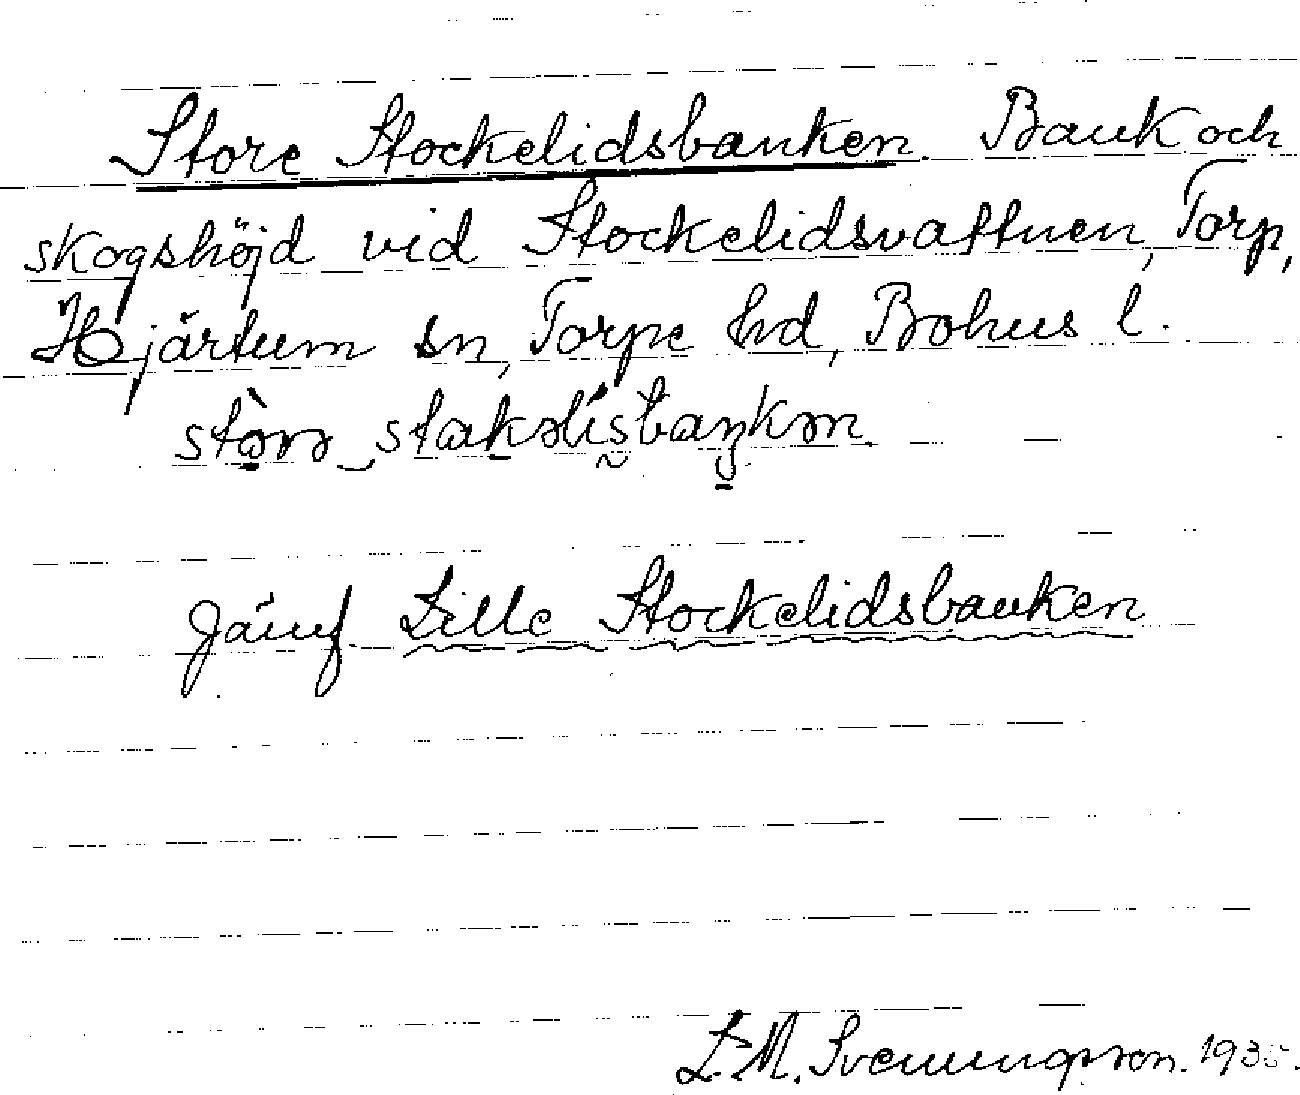 Store Stockelidsbanken. Bank och
skogshöjd vid Stockelidsvattnen, Torp,
Hjärtum sn, Torpe hd, Bohus l.
Jämf Lille Stockelidsbanken
L.M. Svenungsson. 1935.